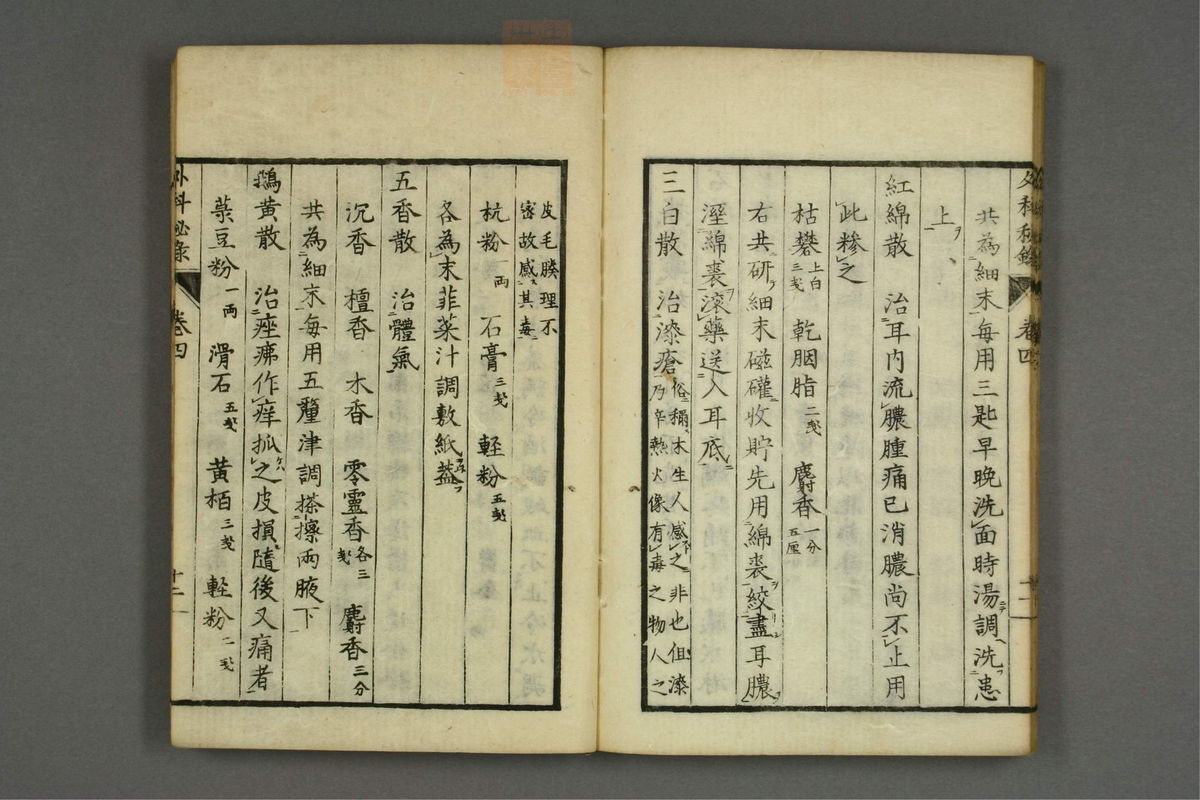 外科秘錄 卷四 十一
共為細末每用三匙早晚洗面時湯調洗患
上
紅綿散 治耳內流膿腫痛已消膿尚不止用
此糝之
枯礬上白三戔 乾胭脂二戔 麝香一分五厘
右共研細末磁礶收貯先用綿裹絞盡耳膿
溼綿裹滾藥送入耳底
三白散 治漆瘡俗稱木生人感之非也但漆
乃辛熱火像有毒之物人之
皮毛腠理不
密故感其毒
杭粉一両 石膏三戔 軽粉五戔
各為末菲菜汁調敷紙葢
五香散 治體氣
沉香 檀香 木香 零靈香各三戔 麝香三分
共為細末每用五釐津調搽擦兩腋下
鵝黃散 治痤疿作痒抓之皮損隨後又痛者
菉豆粉一両 滑石五戔 黄栢三戔 軽粉二戔
外科秘錄 卷四 十二